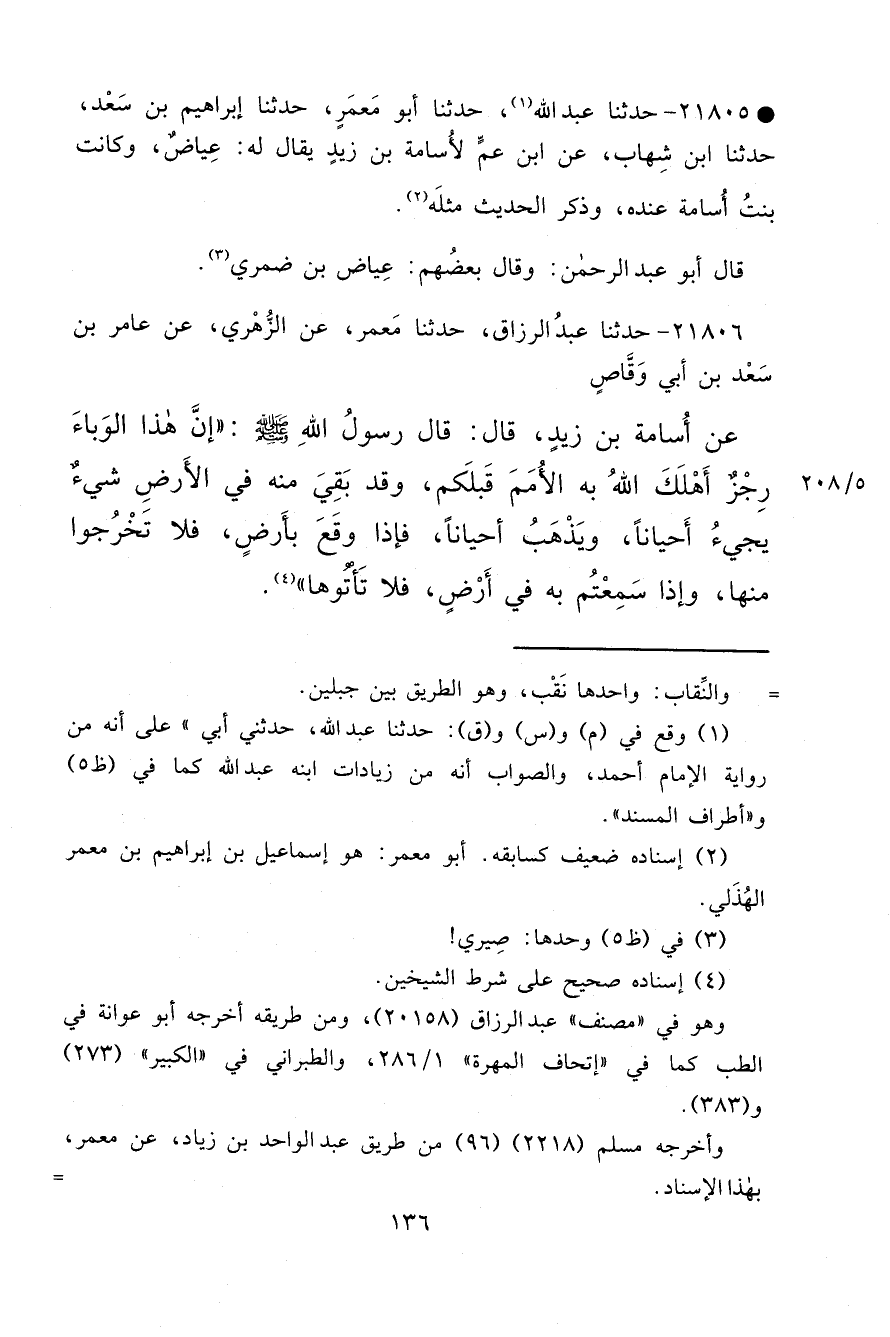 ● ٢١٨٠٥- حدثنا عبد الله(١)، حدثنا أبو مَعمَرٍ، حدثنا إبراهيم بن سَعْد،
حدثنا ابن شِهاب، عن ابن عمٍّ لأُسامة بن زيدٍ يقال له: عِياضٌ، وكانت
بنتُ أُسامة عنده، وذكر الحديث مثلَه(٢).
قال أبو عبد الرحمٰن: وقال بعضُهم: عِياض بن ضمري(٣).
٢١٨٠٦- حدثنا عبدُ الرزاق، حدثنا مَعمر، عن الزُّهْري، عن عامر بن
سَعْد بن أبي وَقَّاصٍ
عن أُسامة بن زيدٍ، قال: قال رسولُ اللهِ ﷺ: «إنَّ هٰذا الوَباءَ
رِجْزٌ أَهْلَكَ اللهُ به الأُمَمَ قَبلَكم، وقد بَقِيَ منه في الأَرضِ شيءٌ ٢٠٨/٥
يجيءُ أَحياناً، ويَذْهَبُ أحياناً، فإذا وقَعَ بأَرضٍ، فلا تَخْرُجوا
منها، وإذا سَمِعْتُم به في أَرْضٍ، فلا تَأْتُوها»(٤).
= والنِّقاب: واحدها نَقْب، وهو الطريق بين جبلين.
(١) وقع في (م) و(س) و(ق): حدثنا عبد الله، حدثني أبي » على أنه من
رواية الإمام أحمد، والصواب أنه من زيادات ابنه عبد الله كما في (ظ٥)
و«أطراف المسند».
(٢) إسناده ضعيف كسابقه. أبو معمر: هو إسماعيل بن إبراهيم بن معمر
الهُذَلي.
(٣) في (ظ٥) وحدها: صِيري!
(٤) إسناده صحيح على شرط الشيخين.
وهو في «مصنف» عبد الرزاق (٢٠١٥٨)، ومن طريقه أخرجه أبو عوانة في
الطب كما في «إتحاف المهرة» ٢٨٦/١، والطبراني في «الكبير» (٢٧٣)
و(٣٨٣).
وأخرجه مسلم (٢٢١٨) (٩٦) من طريق عبد الواحد بن زياد، عن معمر،
بهٰذا الإسناد. =
١٣٦